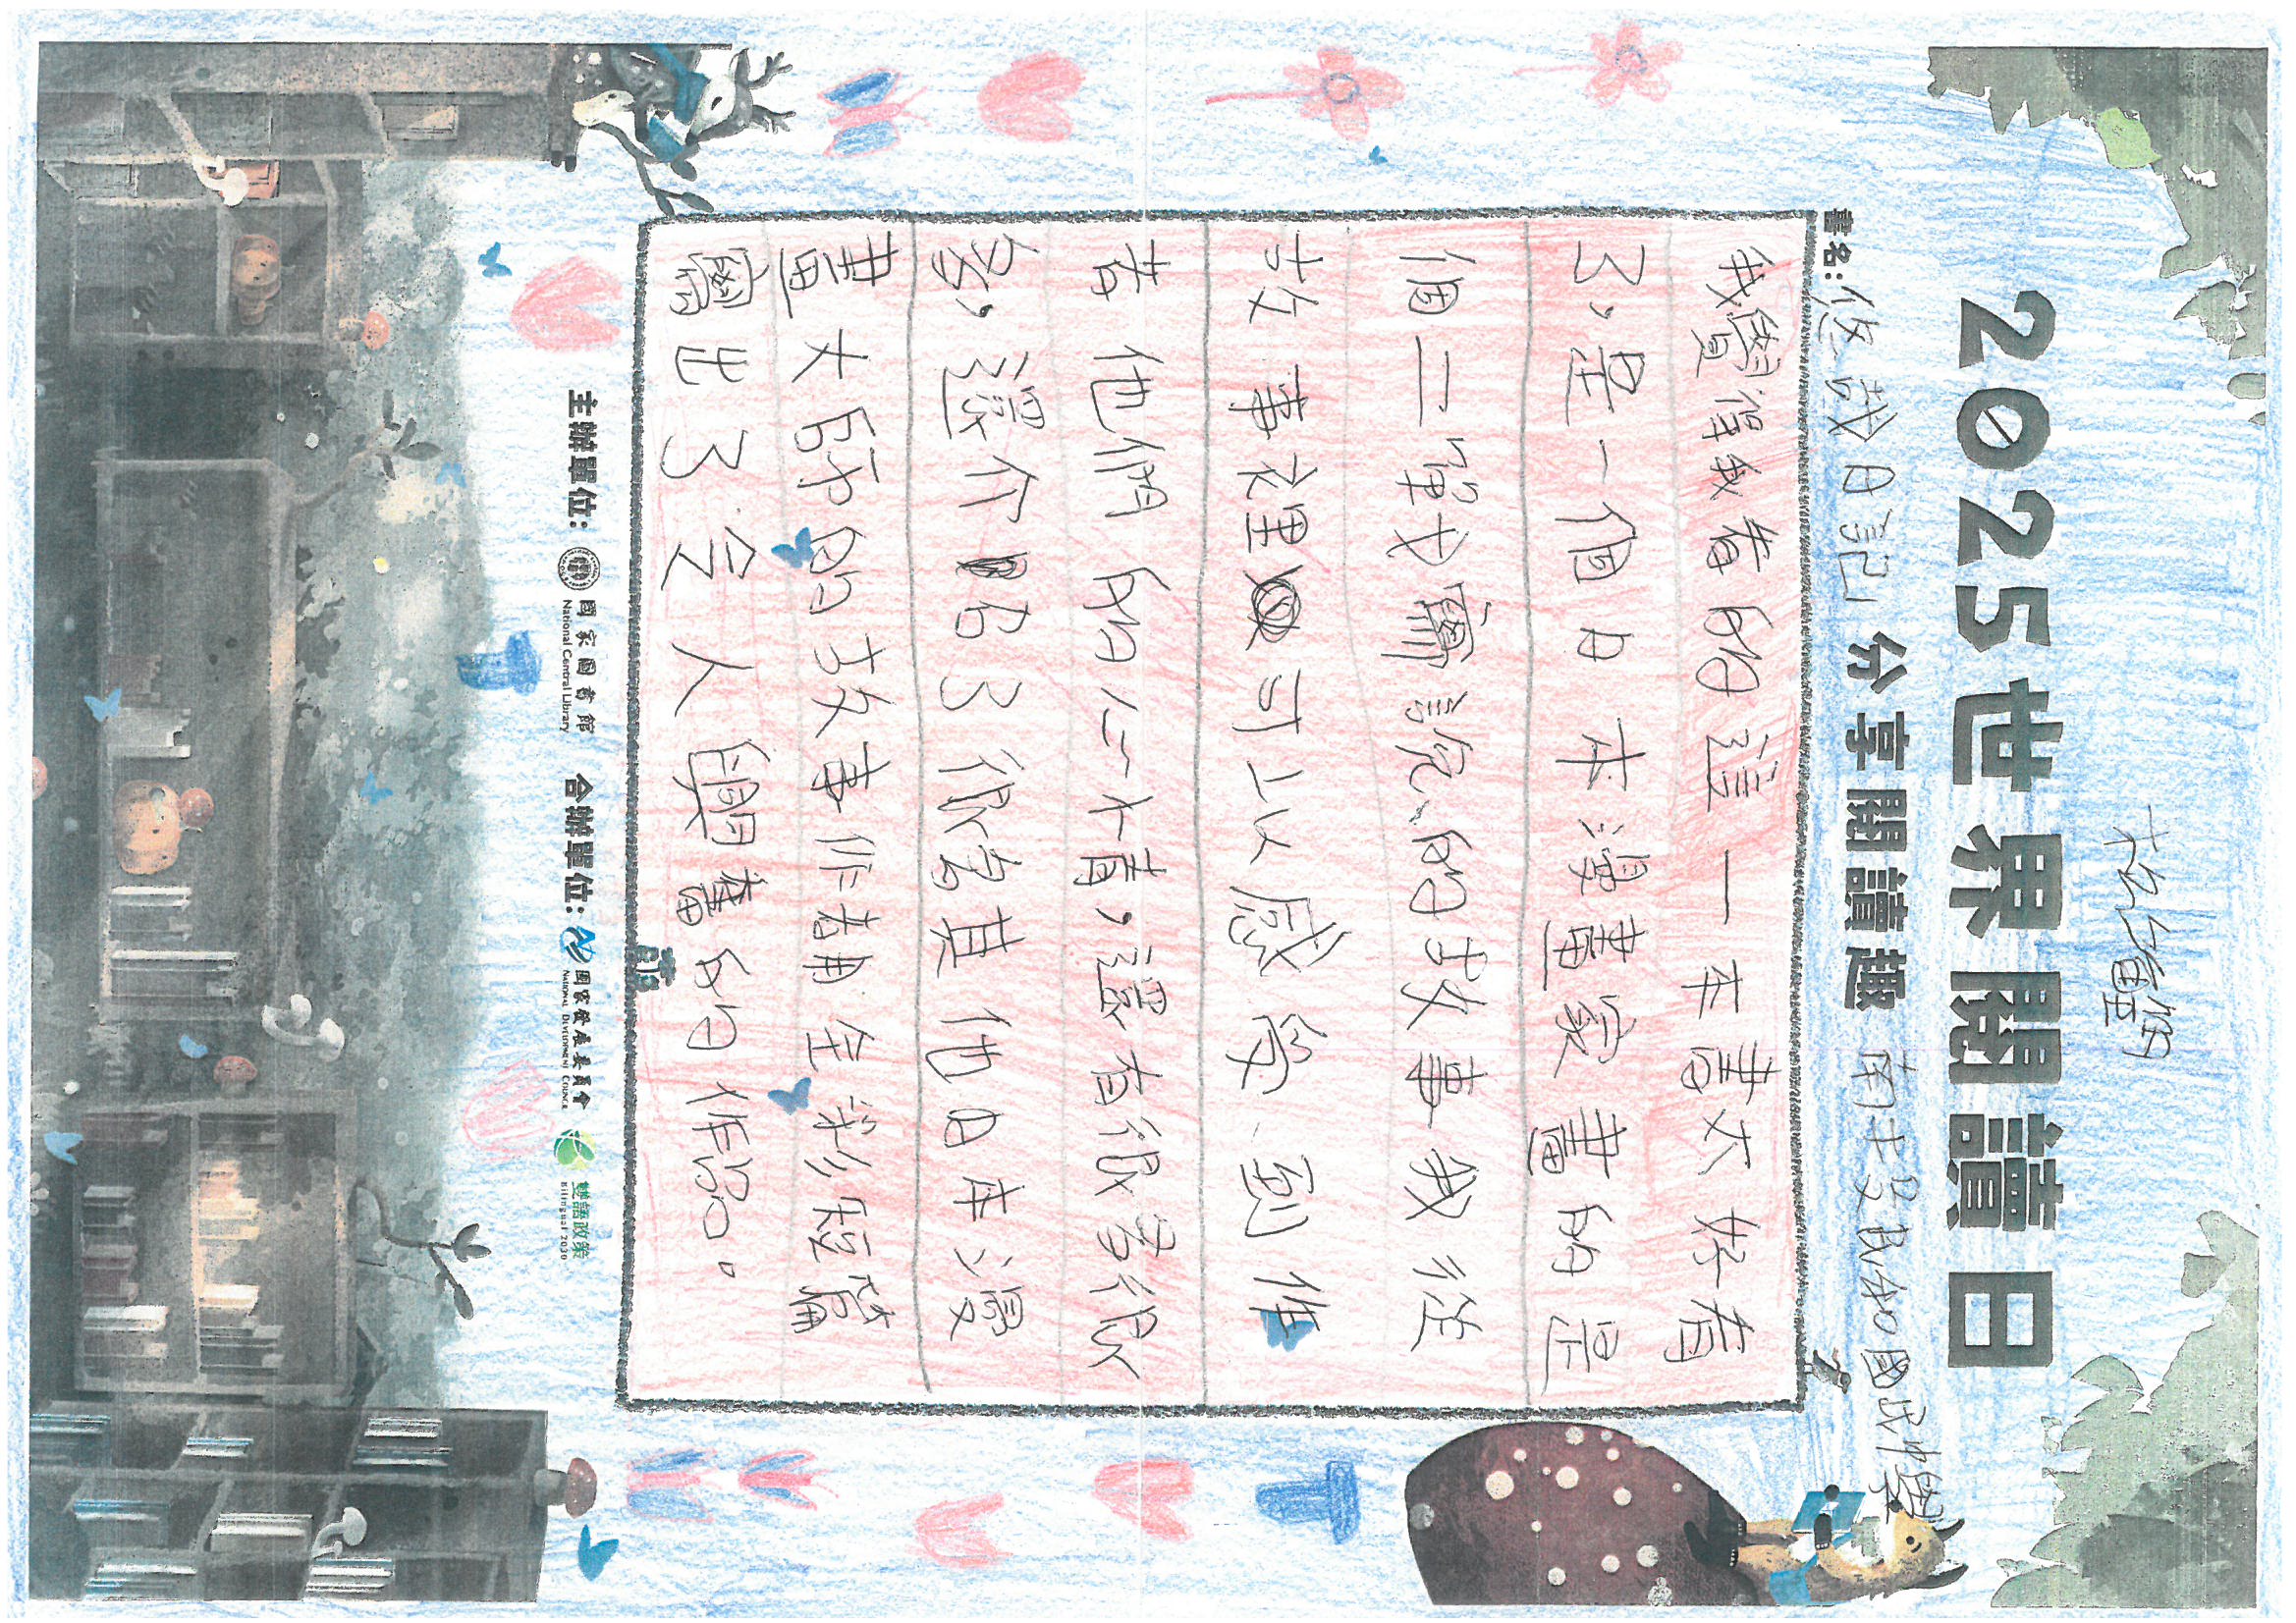 2025世界閱讀日
書名:悠哉日記 分享閱讀趣 南投民和國民中學
我覺得我看的這一本書太好看
了，是一個日本漫畫家畫的是
個二戰說的故事我從
故事裡可以感受到作
者他們的心情，還有很多很
多，還介紹了很多其他日本漫
畫大師的故事作者用全彩短篇
出了令人興奮的作品。
主辦單位: 國家圖書館 National Central Library 合辦單位: 國家發展委員會 NATIONAL DEVELOPMENT COUNCIL 雙語政策 Bilingual 2030